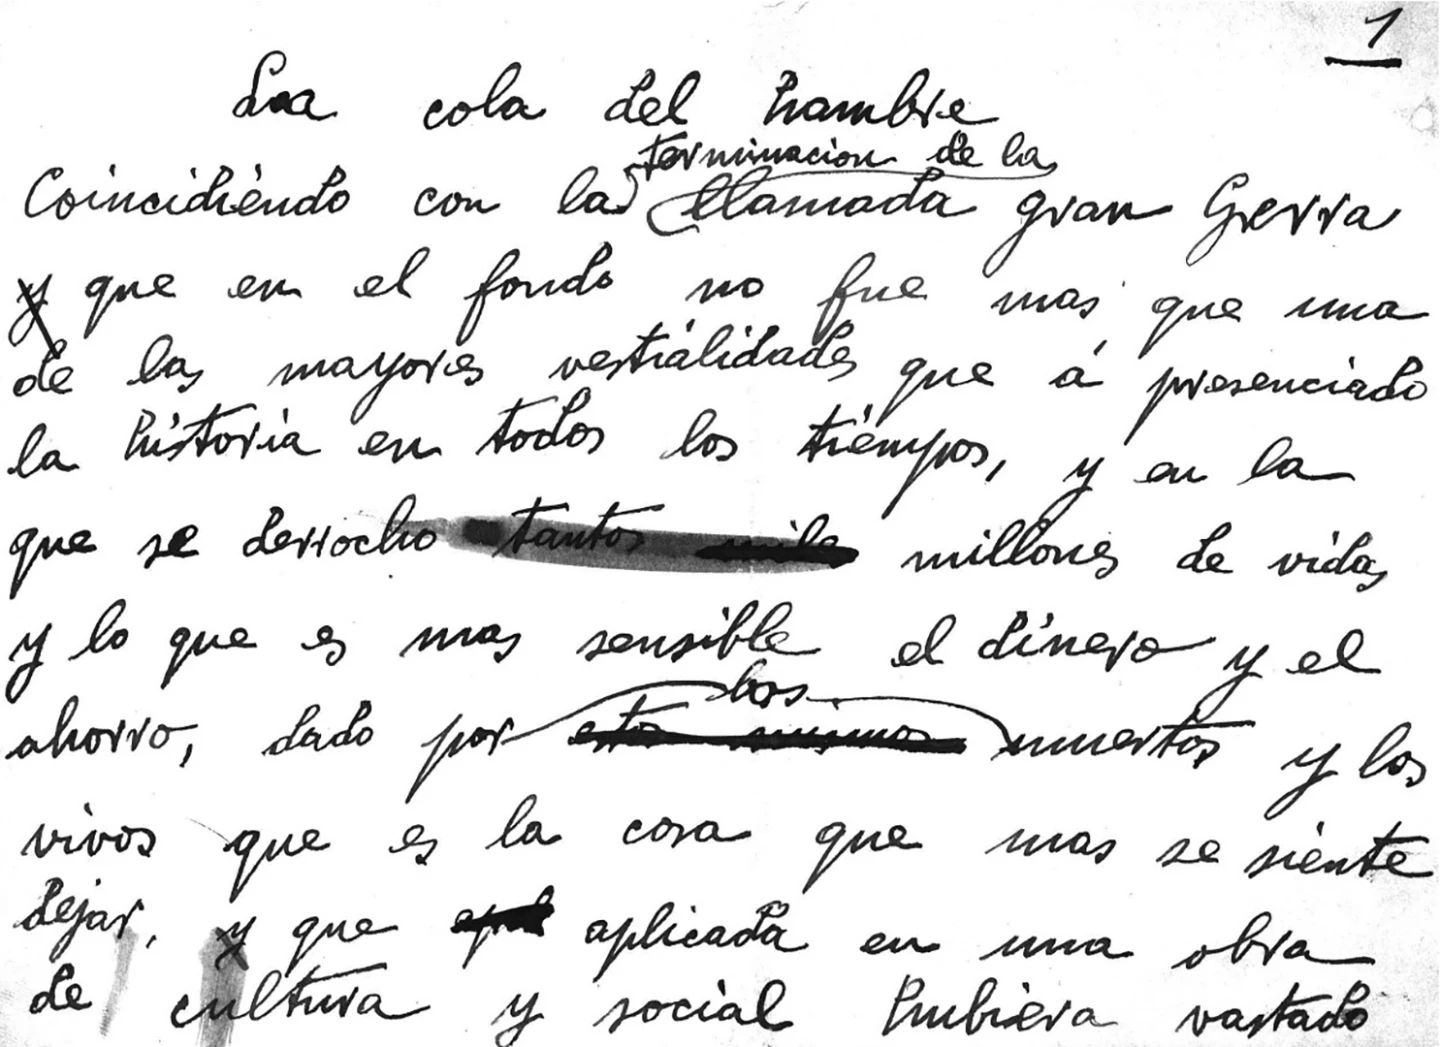 1
La cola del hambre
terminacion de la
Coincidiendo con la llamada gran Gerra
y que en el fondo no fue mas que una
de las mayores vestialidades que á presenciado
la historia en todos los tiempos, y en la
que se derrocho tantos mile millones de vidas
y lo que es mas sensible el dinero y el
los
ahorro, dado por estos mismos muertos y los
vivos que es la cosa que mas se siente
dejar, y que aplicada en una obra
de cultura y social hubiera vastado